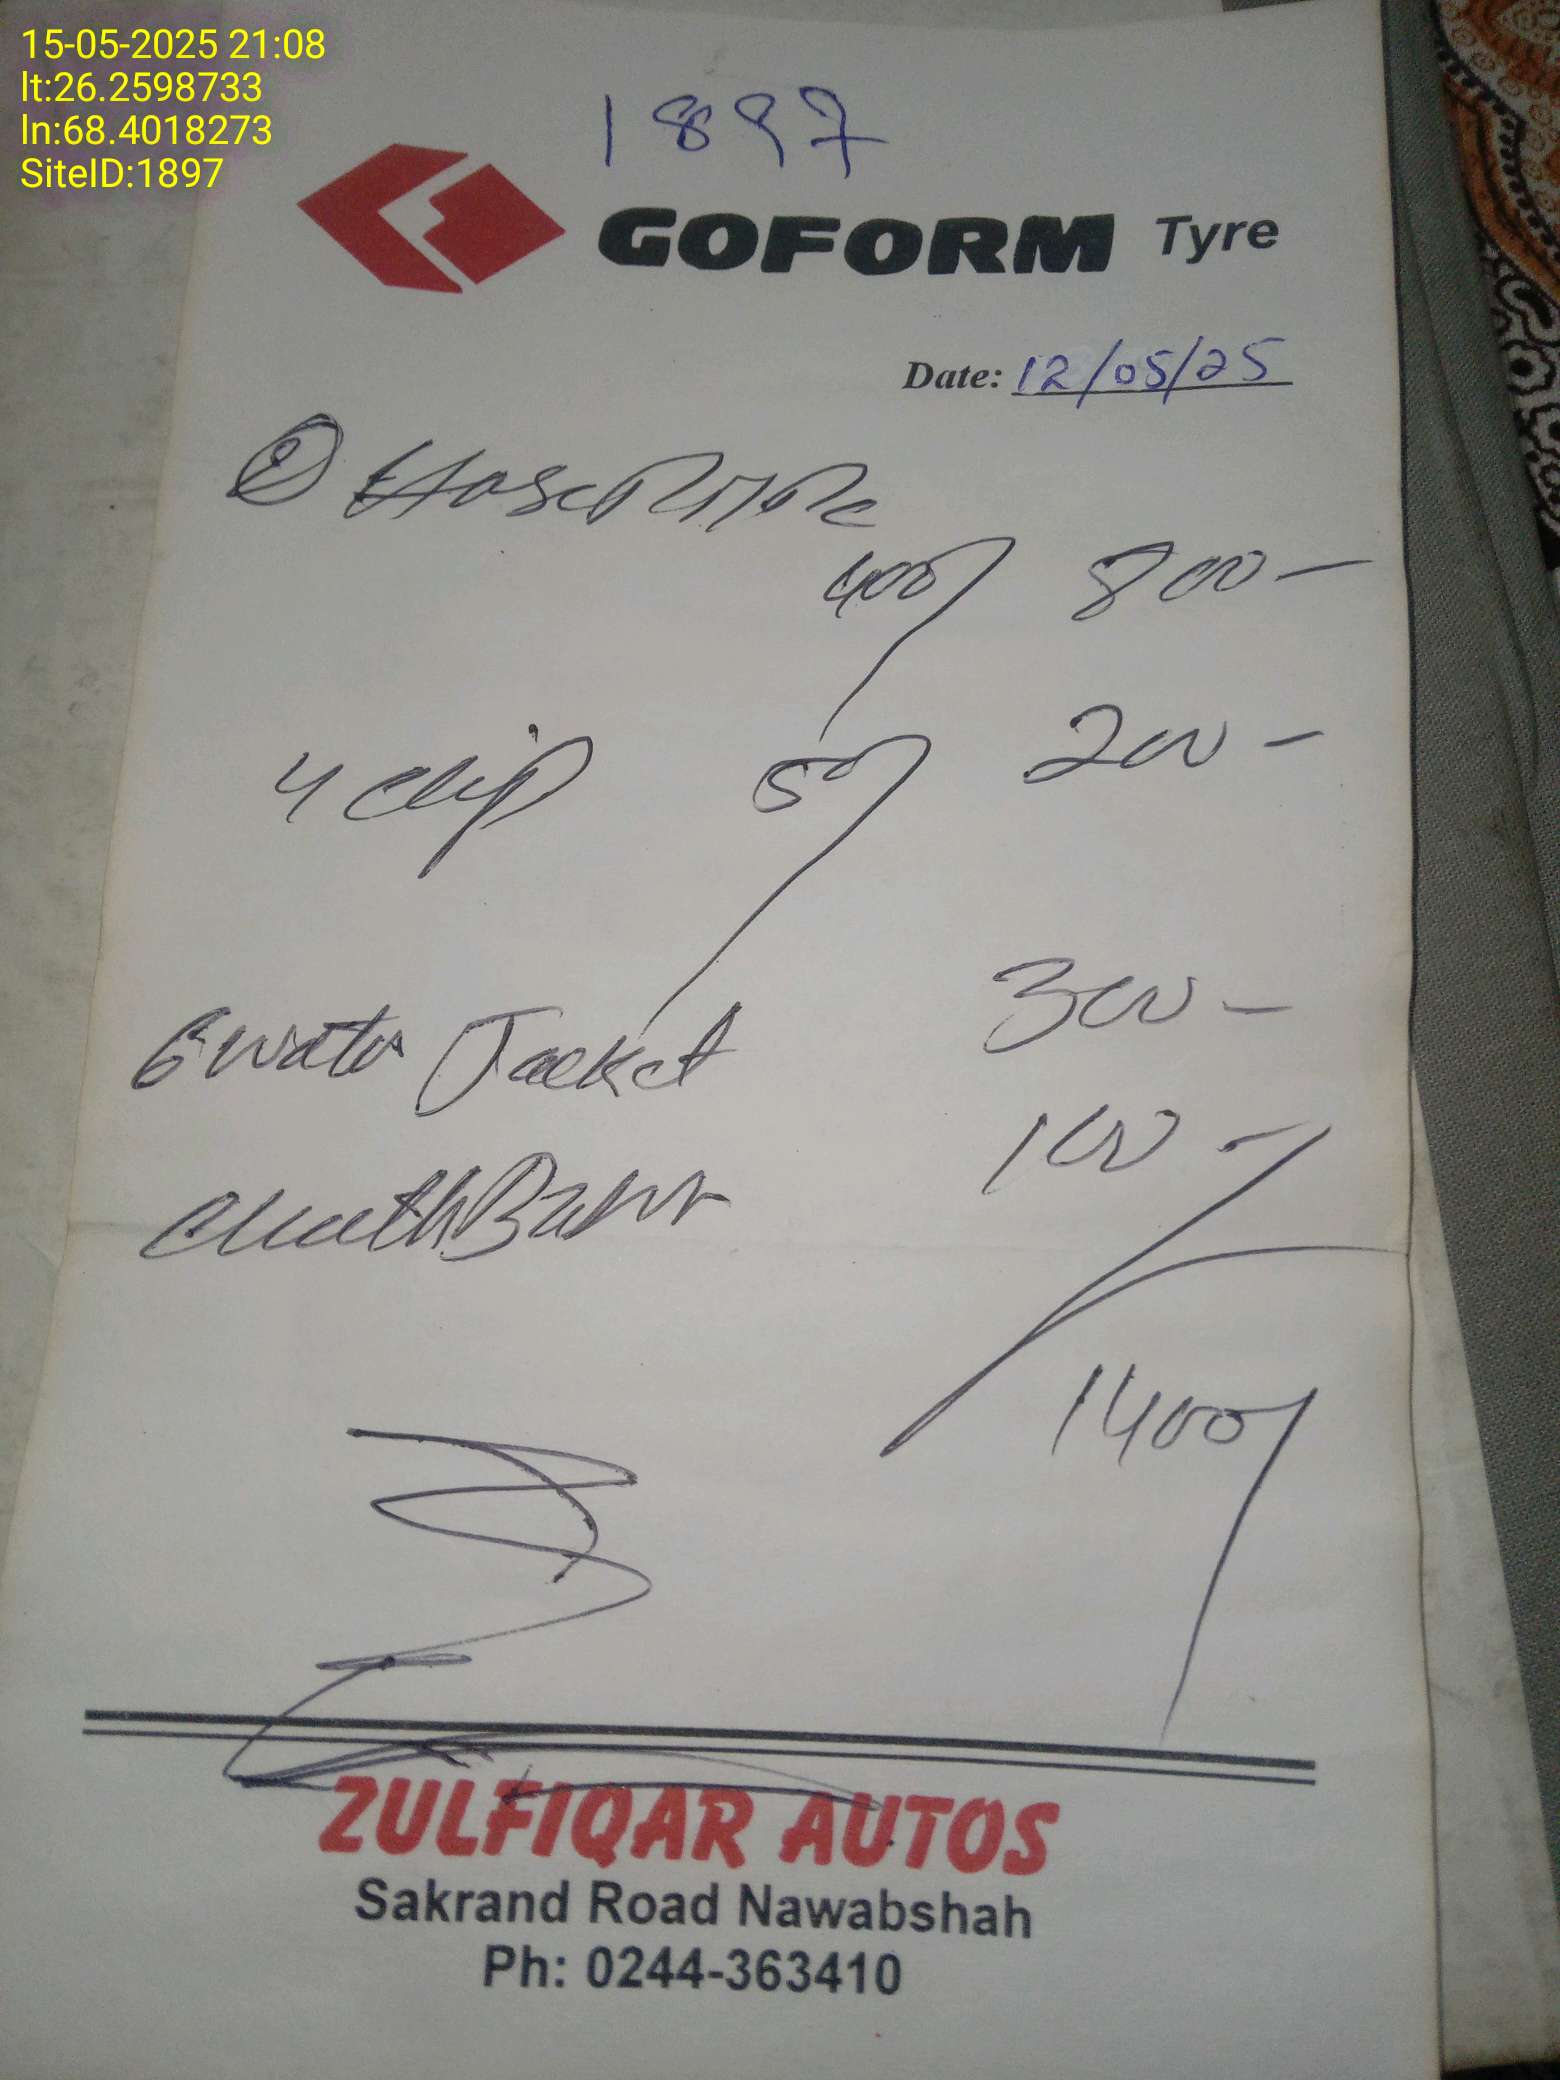 15-05-2025 21:08
lt:26.2598733
ln:68.4018273
SiteID:1897
1897
GOFORM Tyre
Date: 12/05/25
② Hose Pipe
400/ 800-
4 clip 50/ 200-
6 water Jacket 300-
100-
1400/
ZULFIQAR AUTOS
Sakrand Road Nawabshah
Ph: 0244-363410